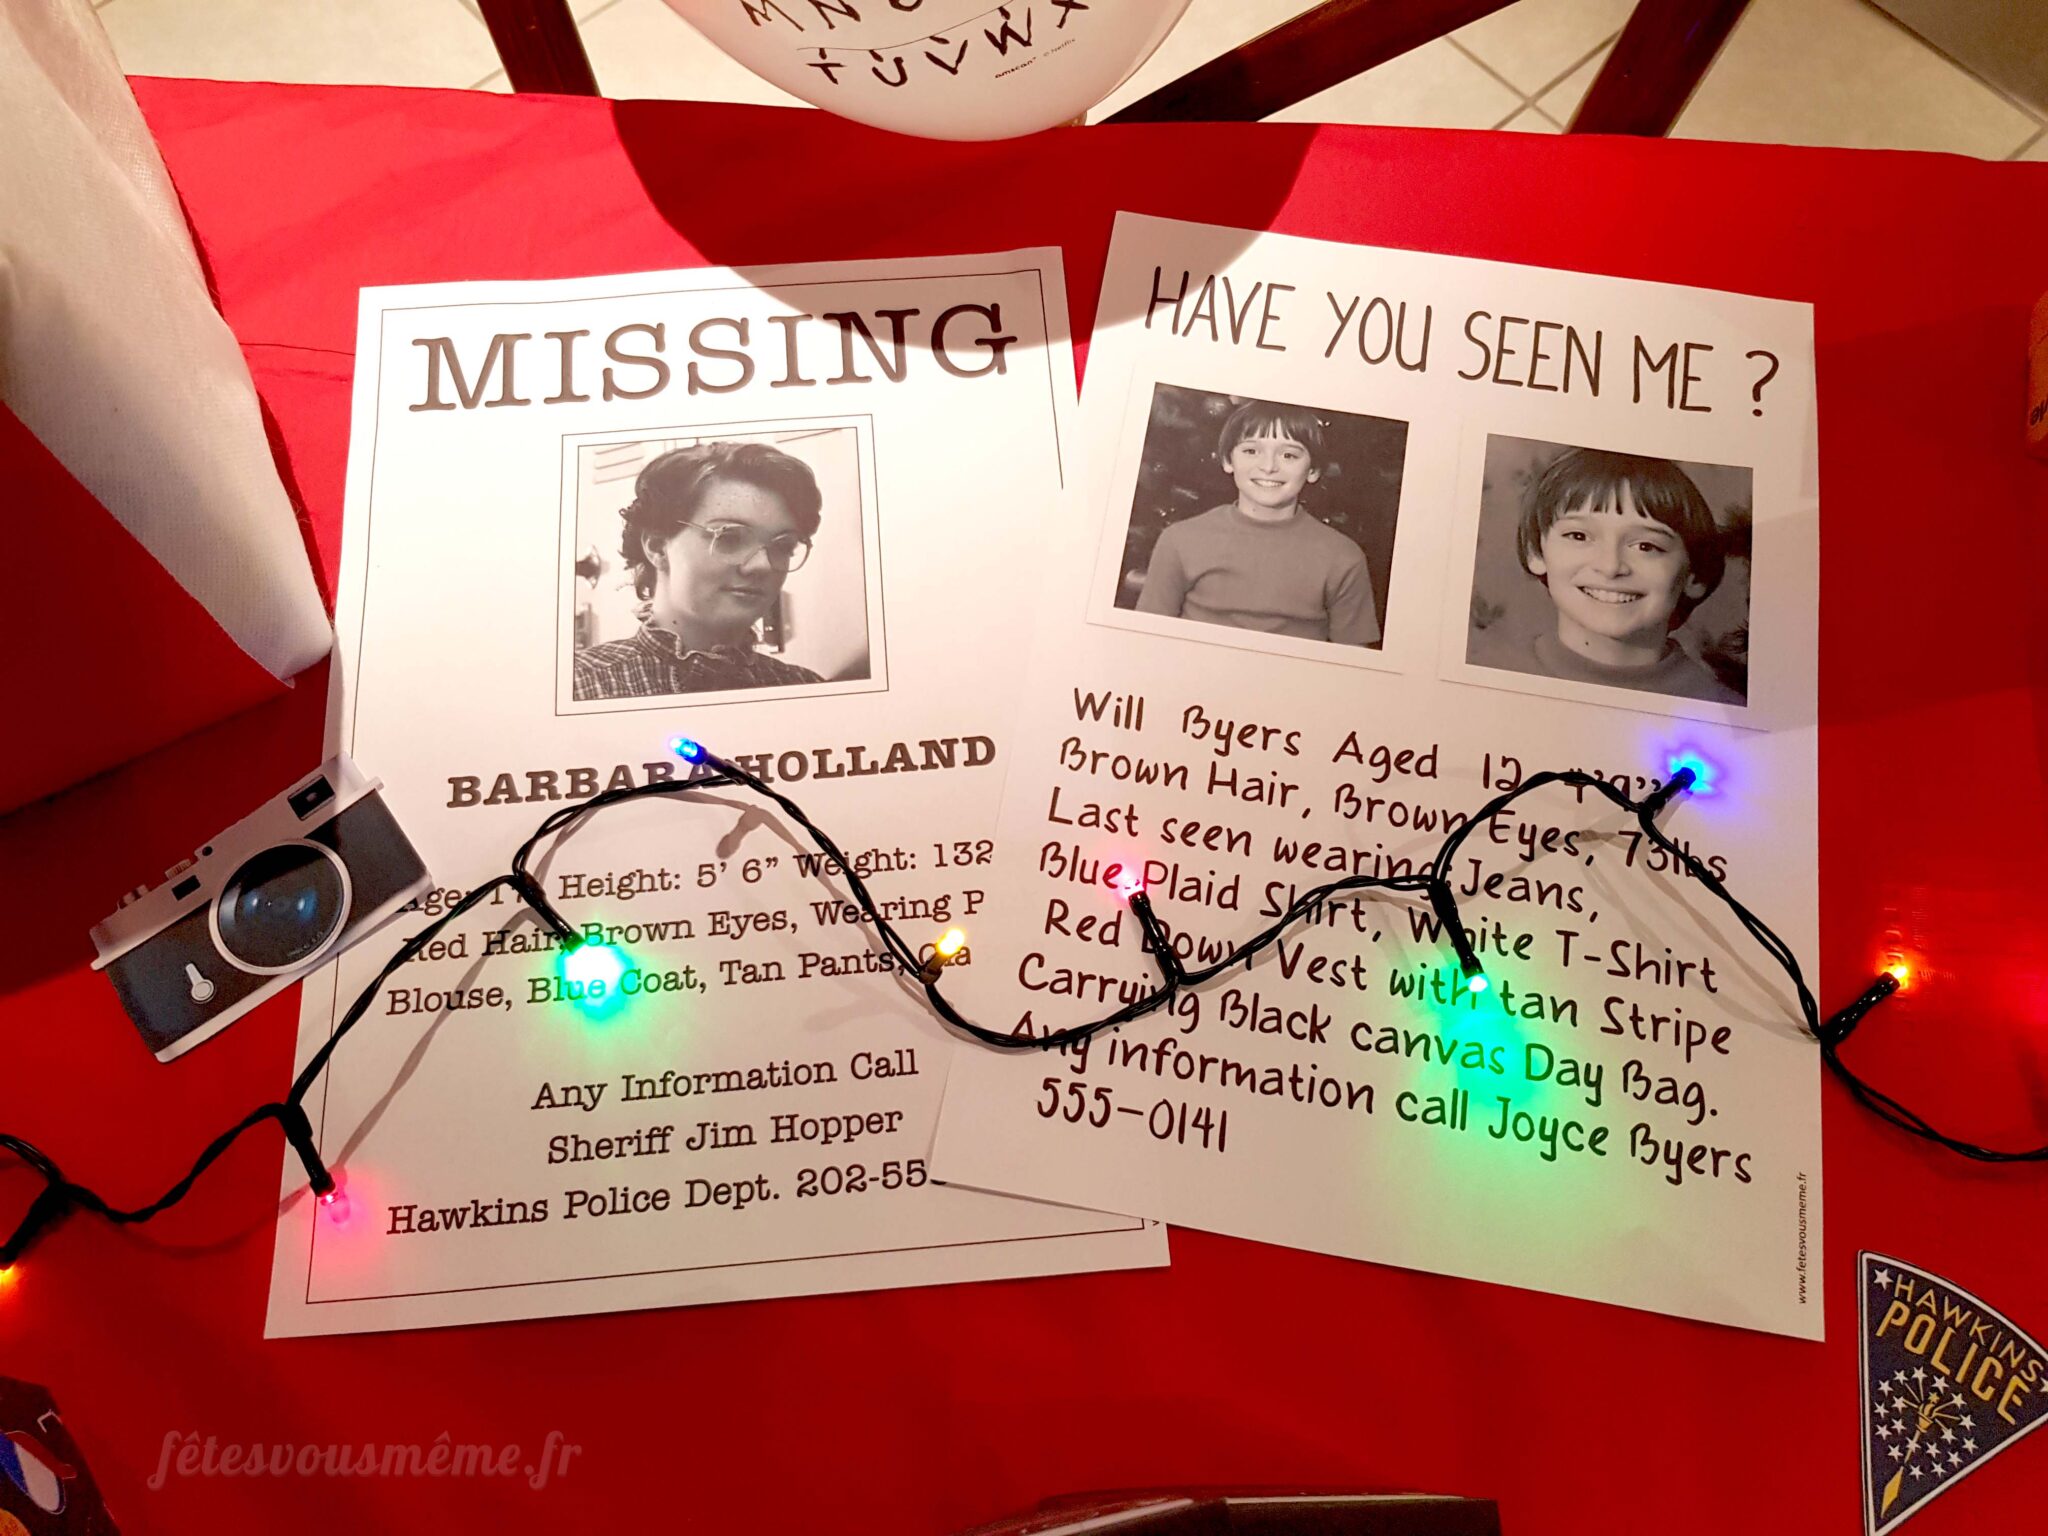 M N O
T U V W X
amscan © Netflix
MISSING
BARBARA HOLLAND
Age: 17 Height: 5' 6" Weight: 132
Red Hair, Brown Eyes, Wearing P
Blouse, Blue Coat, Tan Pants,
Any Information Call
Sheriff Jim Hopper
Hawkins Police Dept. 202-55
HAVE YOU SEEN ME ?
Will Byers Aged 12 4'9"
Brown Hair, Brown Eyes, 73lbs
Last seen wearing Jeans,
Blue Plaid Shirt, White T-Shirt
Red Down Vest with tan Stripe
Carrying Black canvas Day Bag.
Any information call Joyce Byers
555-0141
www.fetesvousmeme.fr
HAWKINS
POLICE
fêtesvousmême.fr